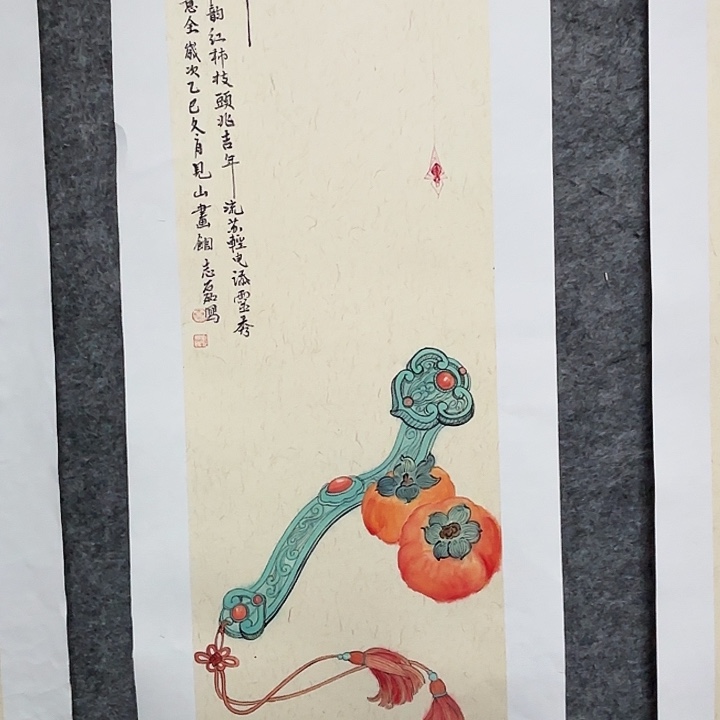 韵红柿枝頭兆吉年流苏輕曳添靈秀
意全嵗次乙巳冬月見山畫館志磊寫